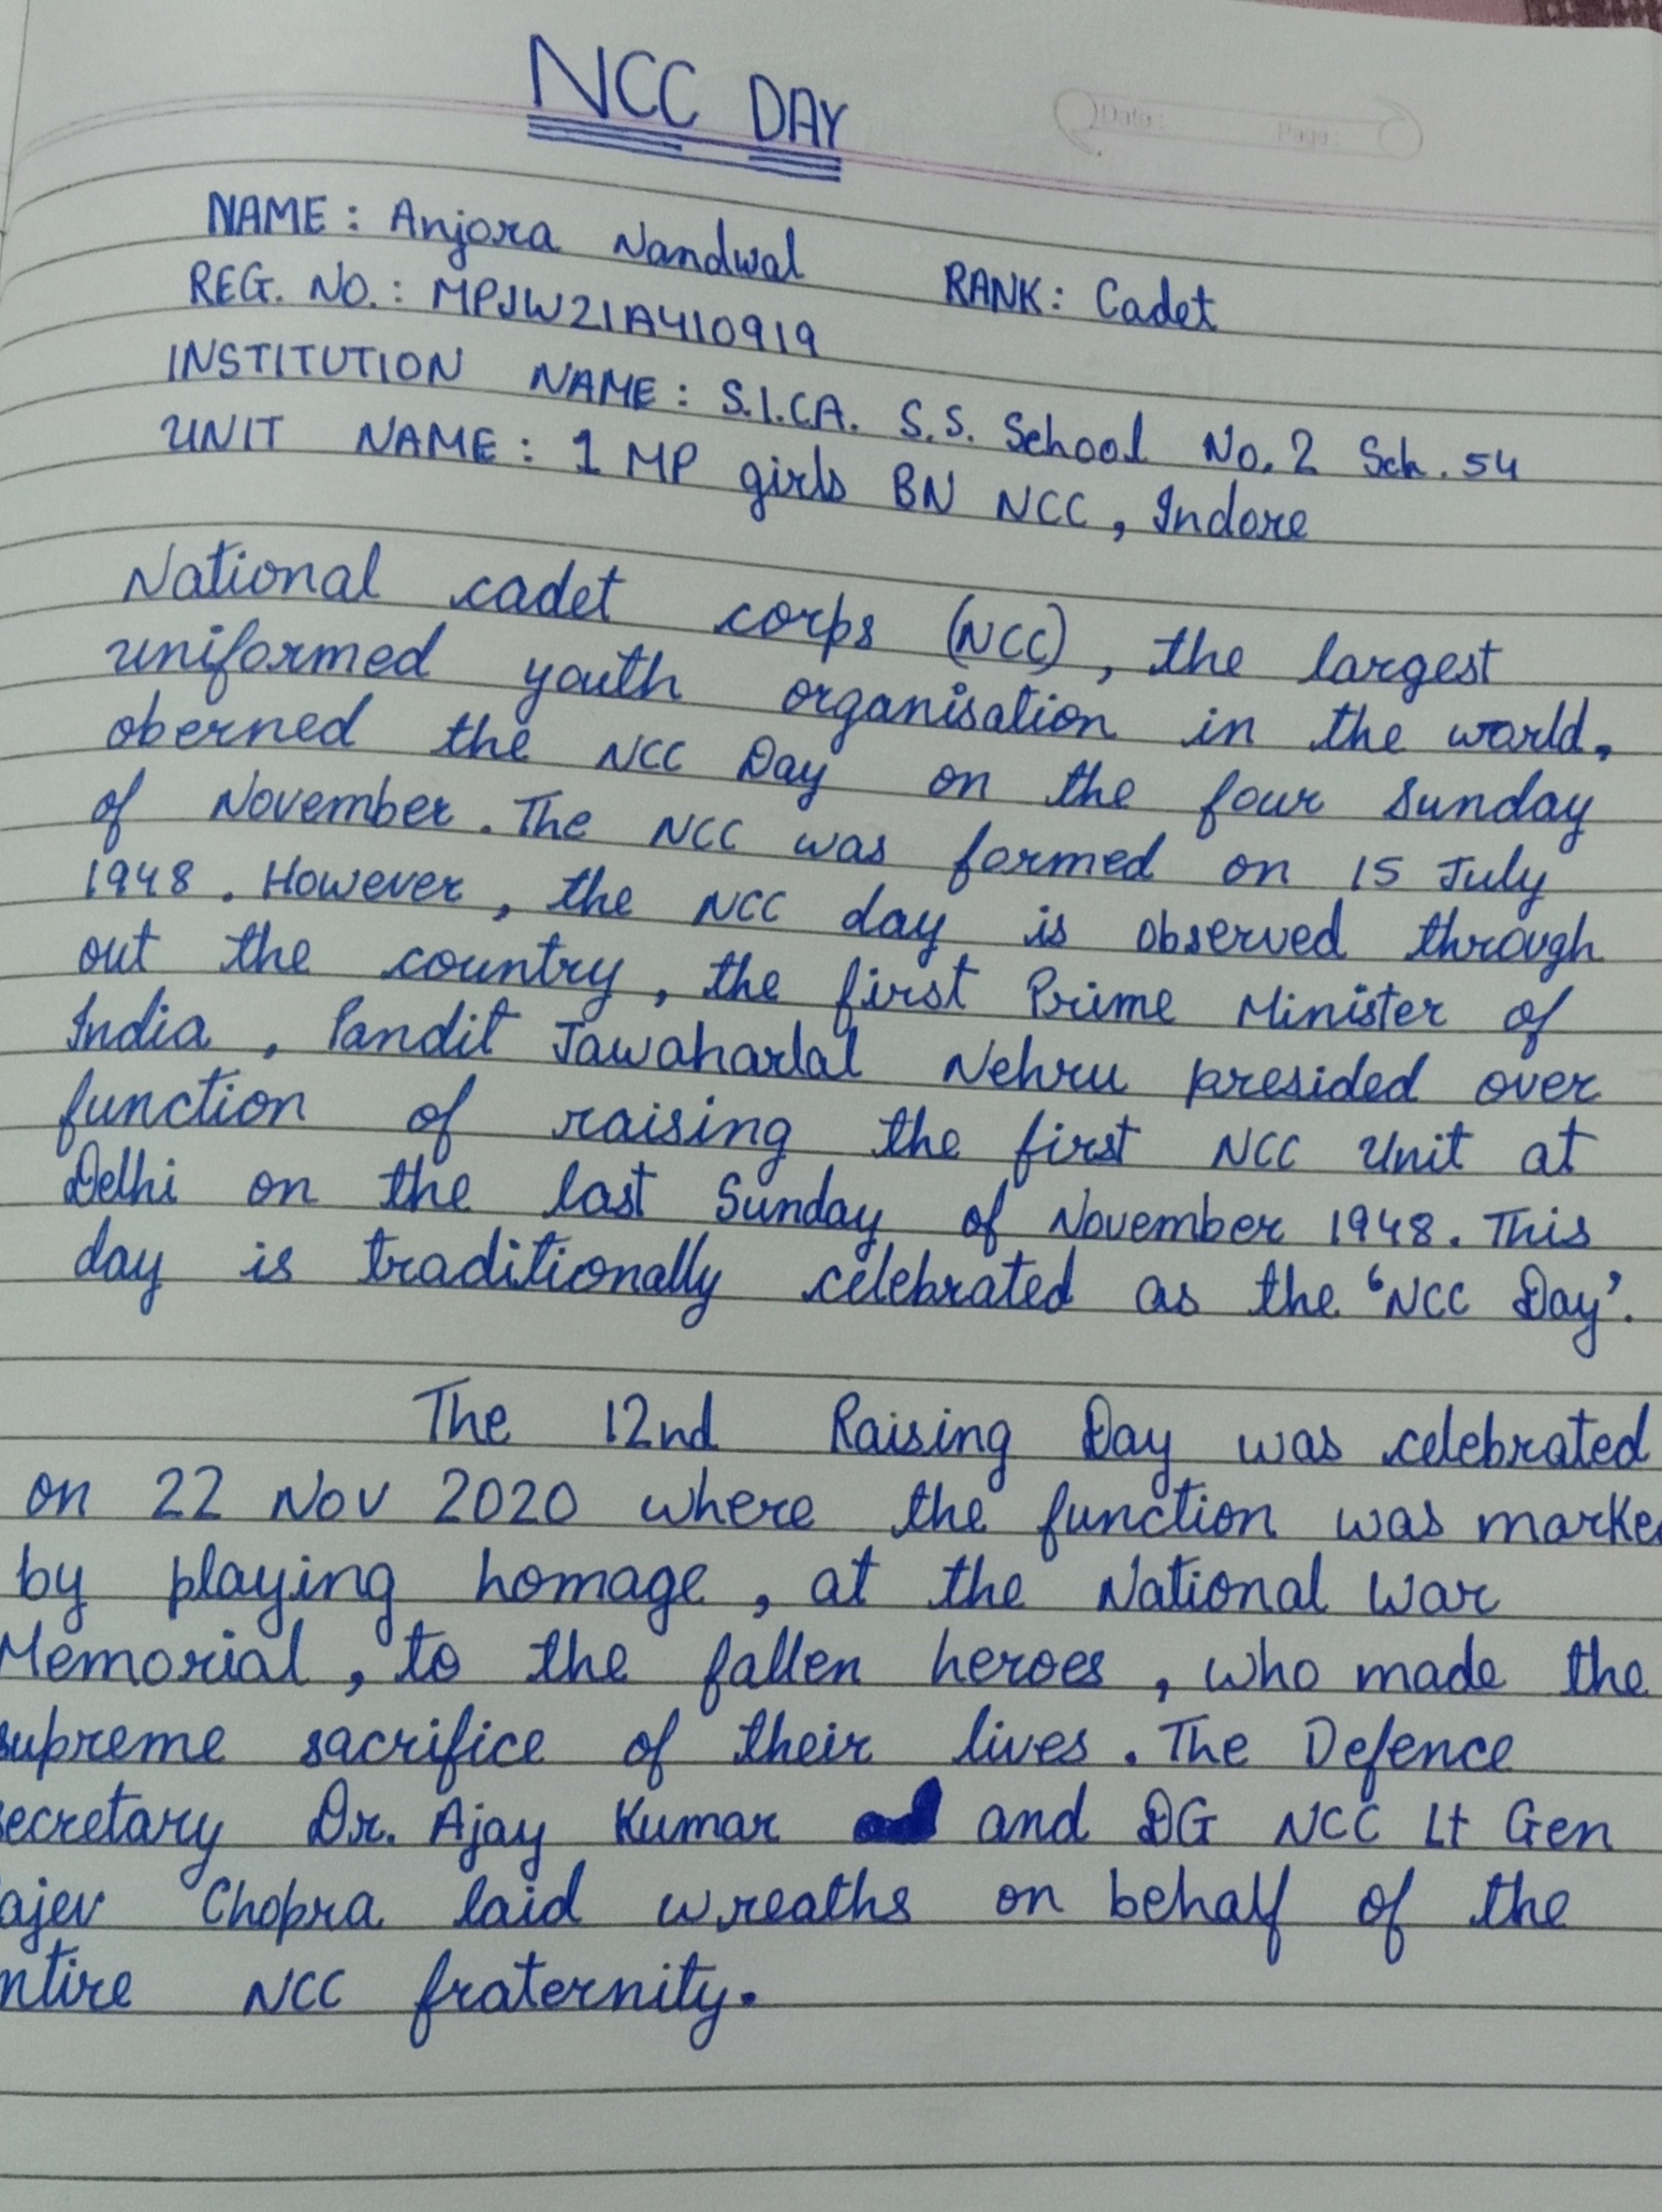 NCC DAY
Date: Page:
NAME: Anjora Nandwal RANK: Cadet
REG. NO.: MPJW21A410919
INSTITUTION NAME: S.I.CA. S.S. School No. 2 Sch. 54
UNIT NAME: 1 MP girls BN NCC, Indore
National cadet corps (NCC), the largest
uniformed youth organisation in the world,
oberned the NCC Day on the four Sunday
of November. The NCC was formed on 15 July
1948. However, the NCC day is observed through
out the country, the first Prime Minister of
India, Pandit Jawaharlal Nehru presided over
function of raising the first NCC Unit at
Delhi on the last Sunday of November 1948. This
day is traditionally celebrated as the 'NCC Day'.
The 12nd Raising Day was celebrated
on 22 Nov 2020 where the function was marke
by playing homage, at the National War
Memorial, to the fallen heroes, who made the
supreme sacrifice of their lives. The Defence
ecretary Dr. Ajay Kumar and DG NCC Lt Gen
ajev Chopra laid wreaths on behalf of the
ntire NCC fraternity.